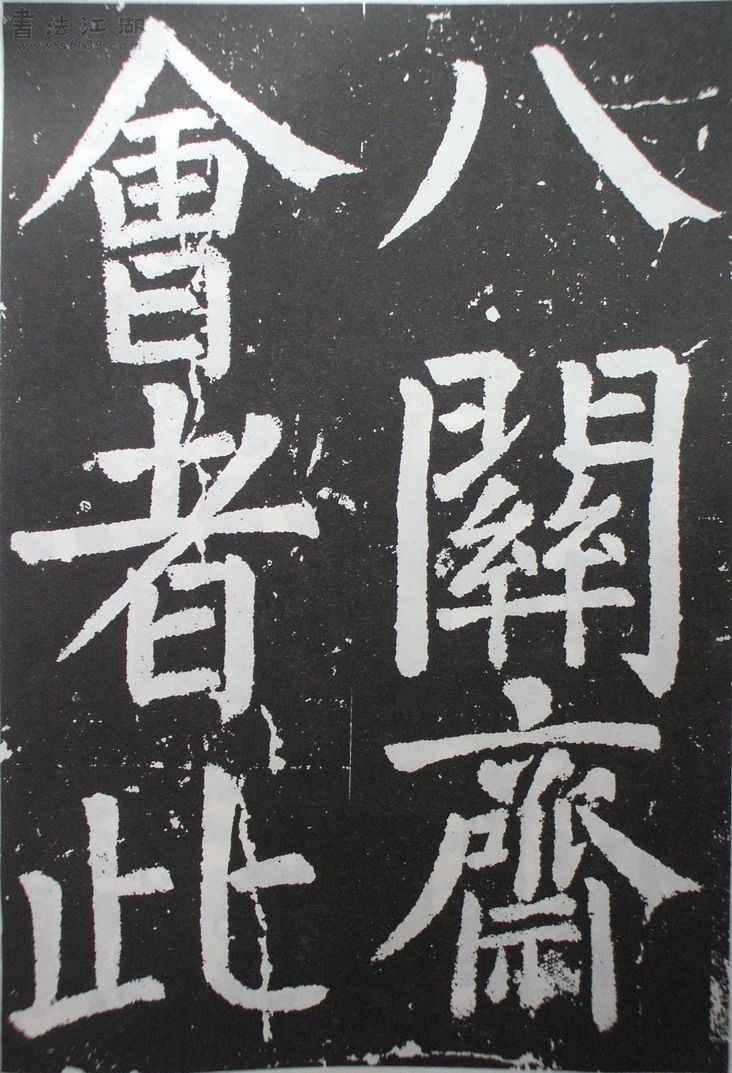 八關齋
會者此
書法江湖
www.sf108.com